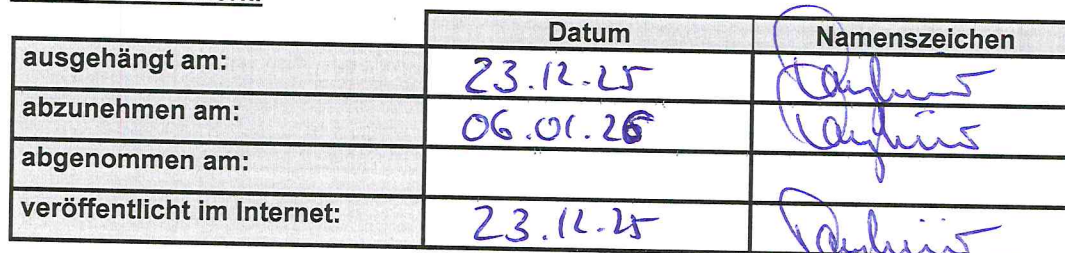 Datum Namenszeichen
ausgehängt am: 23.12.25
abzunehmen am: 06.01.26
abgenommen am:
veröffentlicht im Internet: 23.12.25